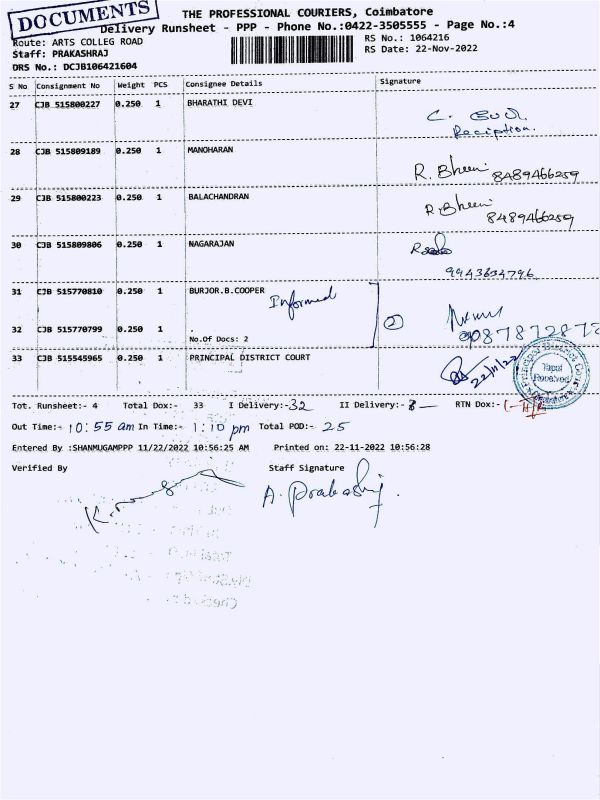 DOCUMENTS
THE PROFESSIONAL COURIERS, Coimbatore
Delivery Runsheet - PPP - Phone No.:0422-3505555 - Page No.:4
Route: ARTS COLLEG ROAD
RS No.: 1064216
Staff: PRAKASHRAJ
RS Date: 22-Nov-2022
DRS No.: DCJB106421604
S No Consignment No Weight PCS Consignee Details Signature
27 CJB 515800227 0.250 1 BHARATHI DEVI
Reciption.
28 CJB 515809189 0.250 1 MANOHARAN
R. Bheem 8489466259
29 CJB 515800223 0.250 1 BALACHANDRAN
R. Bheem
8489466259
30 CJB 515809806 0.250 1 NAGARAJAN
9943634796
31 CJB 515770810 0.250 1 BURJOR.B.COOPER Informed
32 CJB 515770799 0.250 1 . 2
No.Of Docs: 2
33 CJB 515545965 0.250 1 PRINCIPAL DISTRICT COURT
22/11/22
Tapal
Received
Tot. Runsheet:- 4 Total Dox:- 33 I Delivery:- 32 II Delivery:- RTN Dox:-
Out Time:- 10:55 am In Time:- 1:10 pm Total POD:- 25
Entered By :SHANMUGAMPPP 11/22/2022 10:56:25 AM Printed on: 22-11-2022 10:56:28
Verified By Staff Signature
A. Prakashraj.